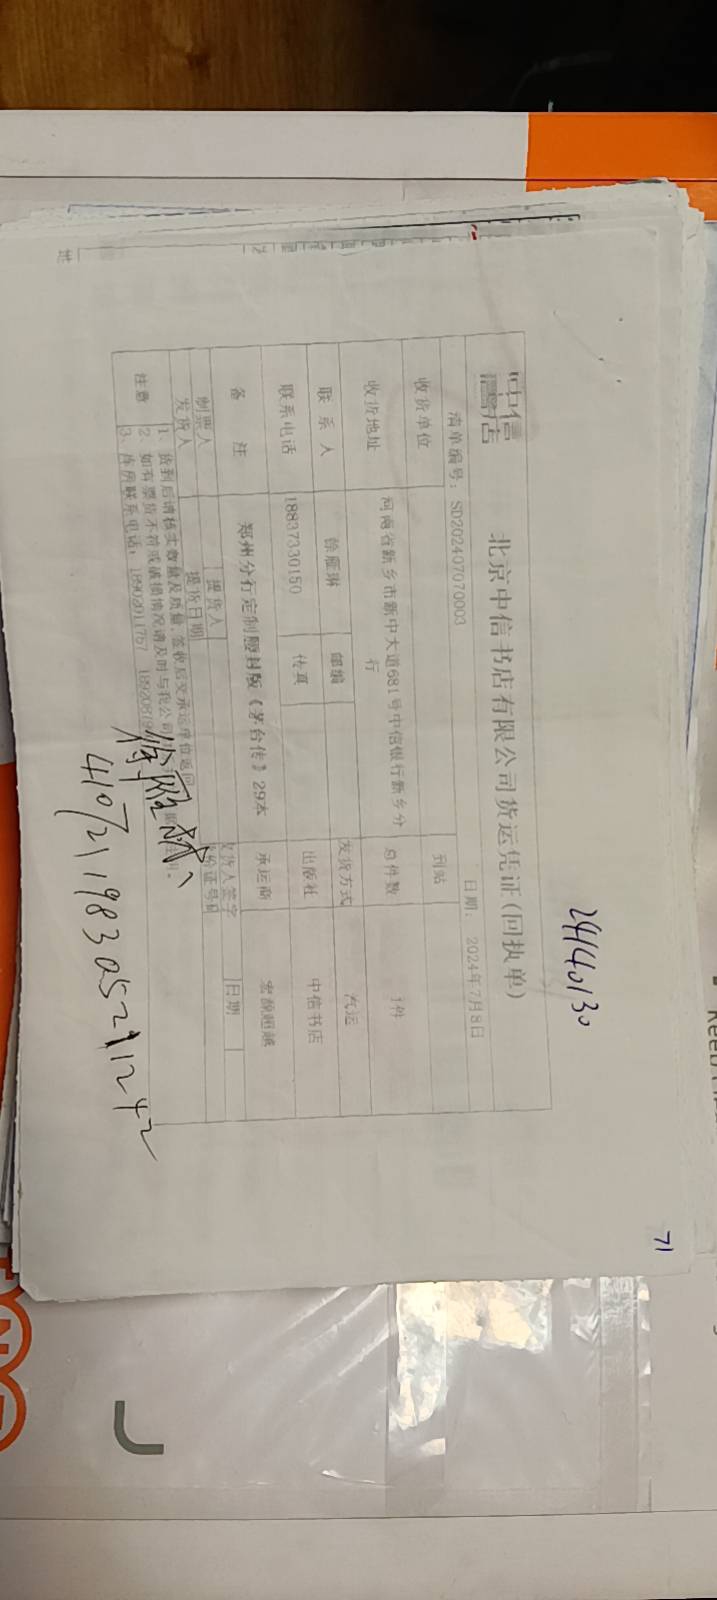 24140130
中信書店
北京中信书店有限公司货运凭证(回执单)
清单编号: SD202407070003 日期: 2024年7月8日
收货单位 到站
收货地址 河南省新乡市新中大道681号中信银行新乡分行 总件数 1件
联系人 徐雁琳 邮编 发货方式 汽运
联系电话 18837330150 传真 出版社 中信书店
备注 郑州分行定制腰封版《茅台传》29本 承运商 宏靓超越
制票人 提货人 收货人签字 日期
发货人 提货日期 身份证号码
注意
1、货到后请核实数量及质量,签收后交承运单位返回
2、如有票货不符或破损情况请及时与我公司
3、库房联系电话: 18902011767 1892087
410721198305211242
71